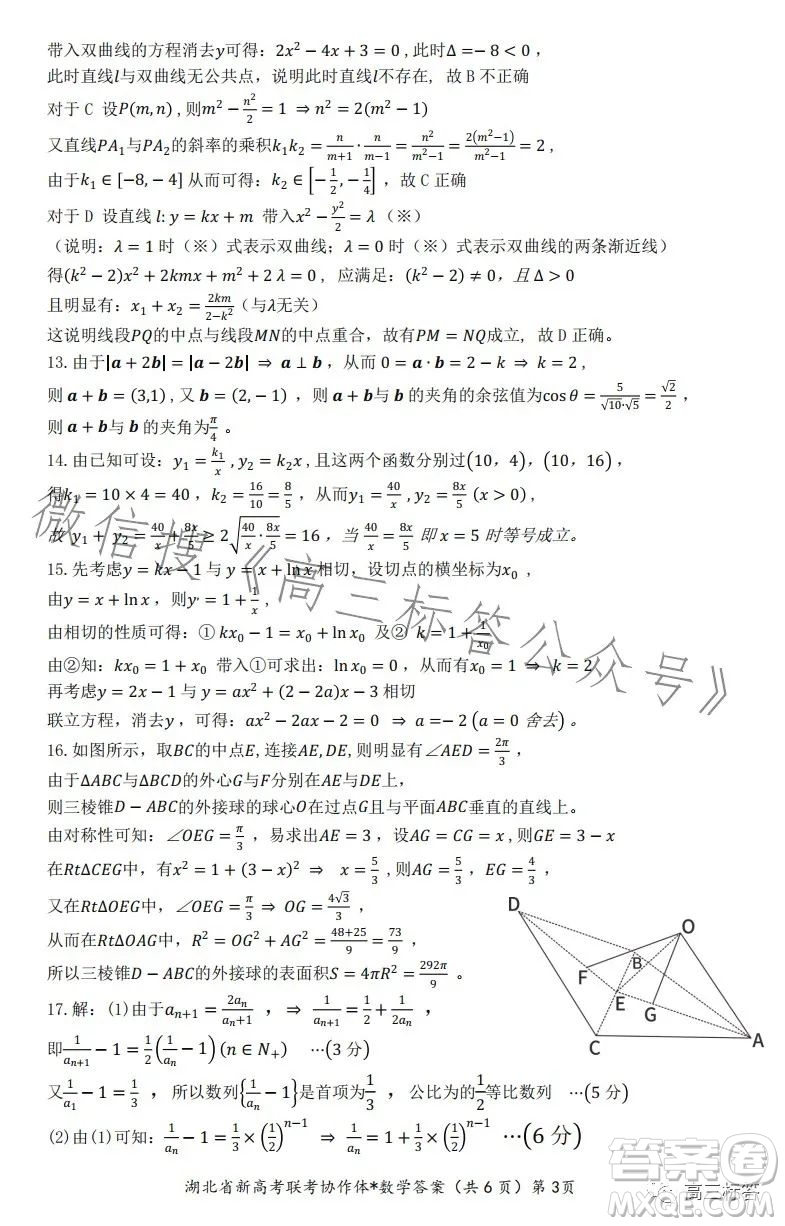 带入双曲线的方程消去y可得：2x² − 4x + 3 = 0 , 此时Δ=− 8 < 0 ，
此时直线l与双曲线无公共点，说明此时直线l不存在，故 B 不正确
对于 C 设P(m, n) , 则m² − n²/2 = 1 ⇒ n² = 2(m² − 1)
又直线PA₁与PA₂的斜率的乘积k₁k₂ = n/(m+1) · n/(m−1) = n²/(m²−1) = 2(m²−1)/(m²−1) = 2 ,
由于k₁ ∈ [−8, −4] 从而可得：k₂ ∈ [−1/2, −1/4] ，故 C 正确
对于 D 设直线 l: y = kx + m 带入x² − y²/2 = λ（※）
（说明：λ = 1 时（※）式表示双曲线；λ = 0 时（※）式表示双曲线的两条渐近线）
得(k² − 2)x² + 2kmx + m² + 2 λ = 0 , 应满足：(k² − 2) ≠ 0，且 Δ > 0
且明显有：x₁ + x₂ = 2km/(2−k²)（与λ无关）
这说明线段PQ的中点与线段MN的中点重合，故有PM = NQ成立，故 D 正确。
13. 由于|a + 2b| = |a − 2b| ⇒ a ⊥ b ，从而 0 = a · b = 2 − k ⇒ k = 2 ,
则 a + b = (3,1) , 又 b = (2, −1) ，则 a + b 与 b 的夹角的余弦值为cos θ = 5/(√10·√5) = √2/2 ，
则 a + b与 b 的夹角为π/4 。
14. 由已知可设：y₁ = k₁/x , y₂ = k₂x , 且这两个函数分别过(10，4)，(10，16)，
得k₁ = 10 × 4 = 40 ，k₂ = 16/10 = 8/5 ，从而y₁ = 40/x , y₂ = 8x/5 (x > 0) ,
故 y₁ + y₂ = 40/x + 8x/5 ≥ 2√(40/x · 8x/5) = 16 ，当 40/x = 8x/5 即 x = 5 时等号成立。
15. 先考虑y = kx − 1 与 y = x + ln x 相切，设切点的横坐标为x₀ ，
由y = x + ln x，则y′ = 1 + 1/x ,
由相切的性质可得：① kx₀ − 1 = x₀ + ln x₀ 及② k = 1 + 1/x₀
由②知：kx₀ = 1 + x₀ 带入①可求出：ln x₀ = 0 ，从而有x₀ = 1 ⇒ k = 2
再考虑y = 2x − 1 与 y = ax² + (2 − 2a)x − 3 相切
联立方程，消去y，可得：ax² − 2ax − 2 = 0 ⇒ a =− 2 (a = 0 舍去)。
16. 如图所示，取BC的中点E,连接AE, DE,则明显有∠AED = 2π/3 ，
由于ΔABC与ΔBCD的外心G与F分别在AE与DE上，
则三棱锥D − ABC的外接球的球心O在过点G且与平面ABC垂直的直线上。
由对称性可知：∠OEG = π/3 ，易求出AE = 3 ，设AG = CG = x , 则EG = 3 − x
在RtΔCEG中，有x² = 1 + (3 − x)² ⇒ x = 5/3 , 则AG = 5/3 ，EG = 4/3 ，
又在RtΔOEG中，∠OEG = π/3 ⇒ OG = 4√3/3 ，
从而在RtΔOAG中，R² = OG² + AG² = (48+25)/9 = 73/9 ，
所以三棱锥D − ABC的外接球的表面积S = 4πR² = 292π/9 。
D
O
B
F
E
G
C
A
17. 解：(1)由于aₙ₊₁ = 2aₙ/(aₙ+1) ，⇒ 1/aₙ₊₁ = 1/2 + 1/(2aₙ) ，
即1/aₙ₊₁ − 1 = 1/2(1/aₙ − 1) (n ∈ N₊) ⋯(3 分)
又1/a₁ − 1 = 1/3 ，所以数列{1/aₙ − 1}是首项为1/3 ，公比为的1/2等比数列 ⋯(5 分)
(2)由(1)可知：1/aₙ − 1 = 1/3 × (1/2)ⁿ⁻¹ ⇒ 1/aₙ = 1 + 1/3 × (1/2)ⁿ⁻¹ ⋯(6 分)
湖北省新高考联考协作体*数学答案（共 6 页）第 3页
微信搜《高三标答公众号》
答案圈
高三标答